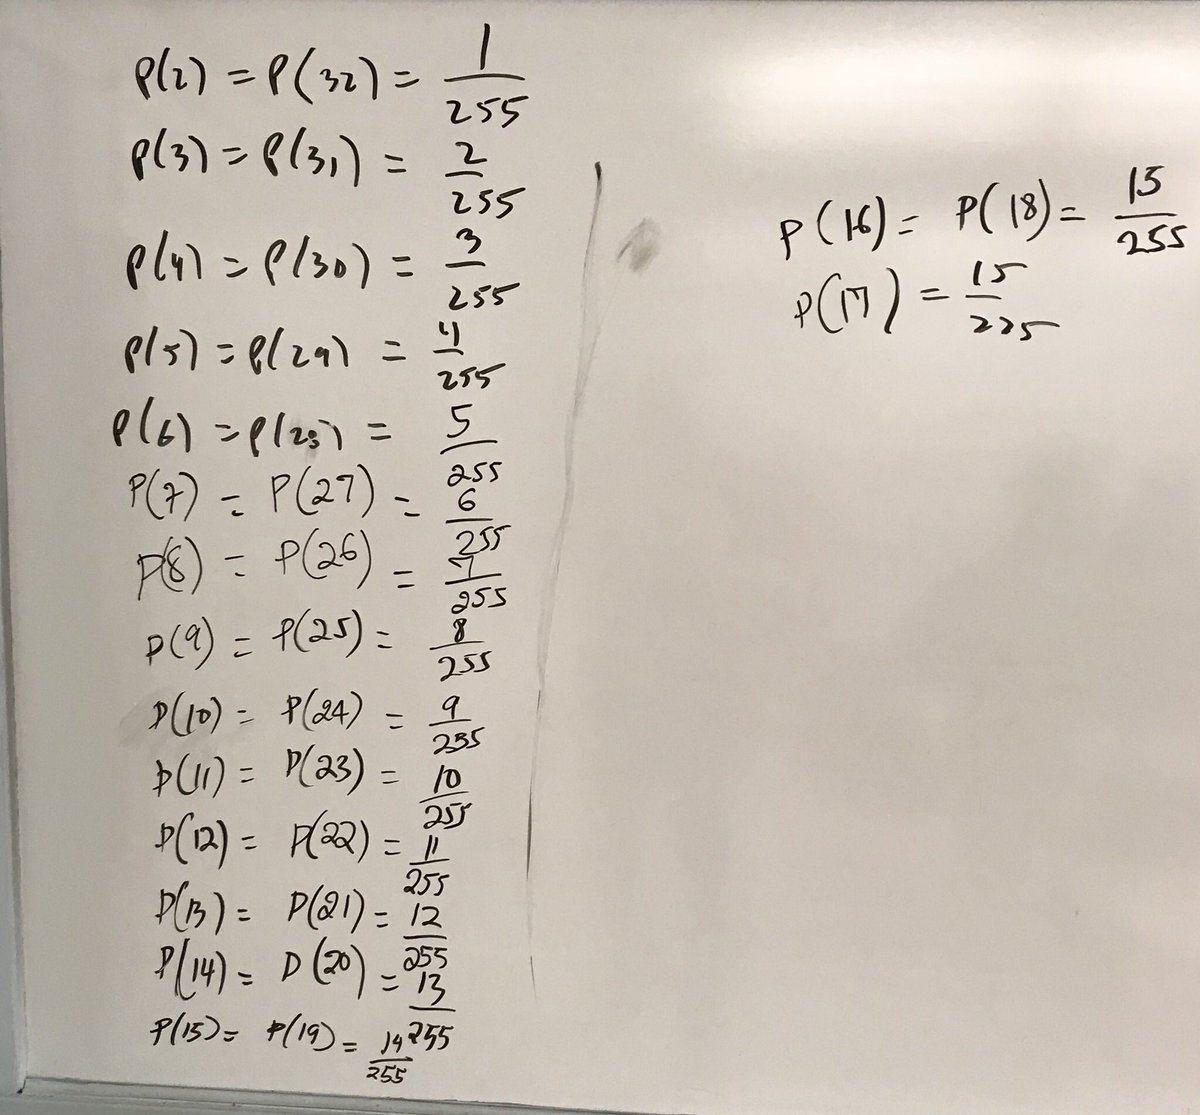 P(2) = P(32) = 1/255
P(3) = P(31) = 2/255
P(4) = P(30) = 3/255
P(5) = P(29) = 4/255
P(6) = P(28) = 5/255
P(7) = P(27) = 6/255
P(8) = P(26) = 7/255
P(9) = P(25) = 8/255
P(10) = P(24) = 9/255
P(11) = P(23) = 10/255
P(12) = P(22) = 11/255
P(13) = P(21) = 12/255
P(14) = P(20) = 13/255
P(15) = P(19) = 14/255
P(16) = P(18) = 15/255
P(17) = 15/225